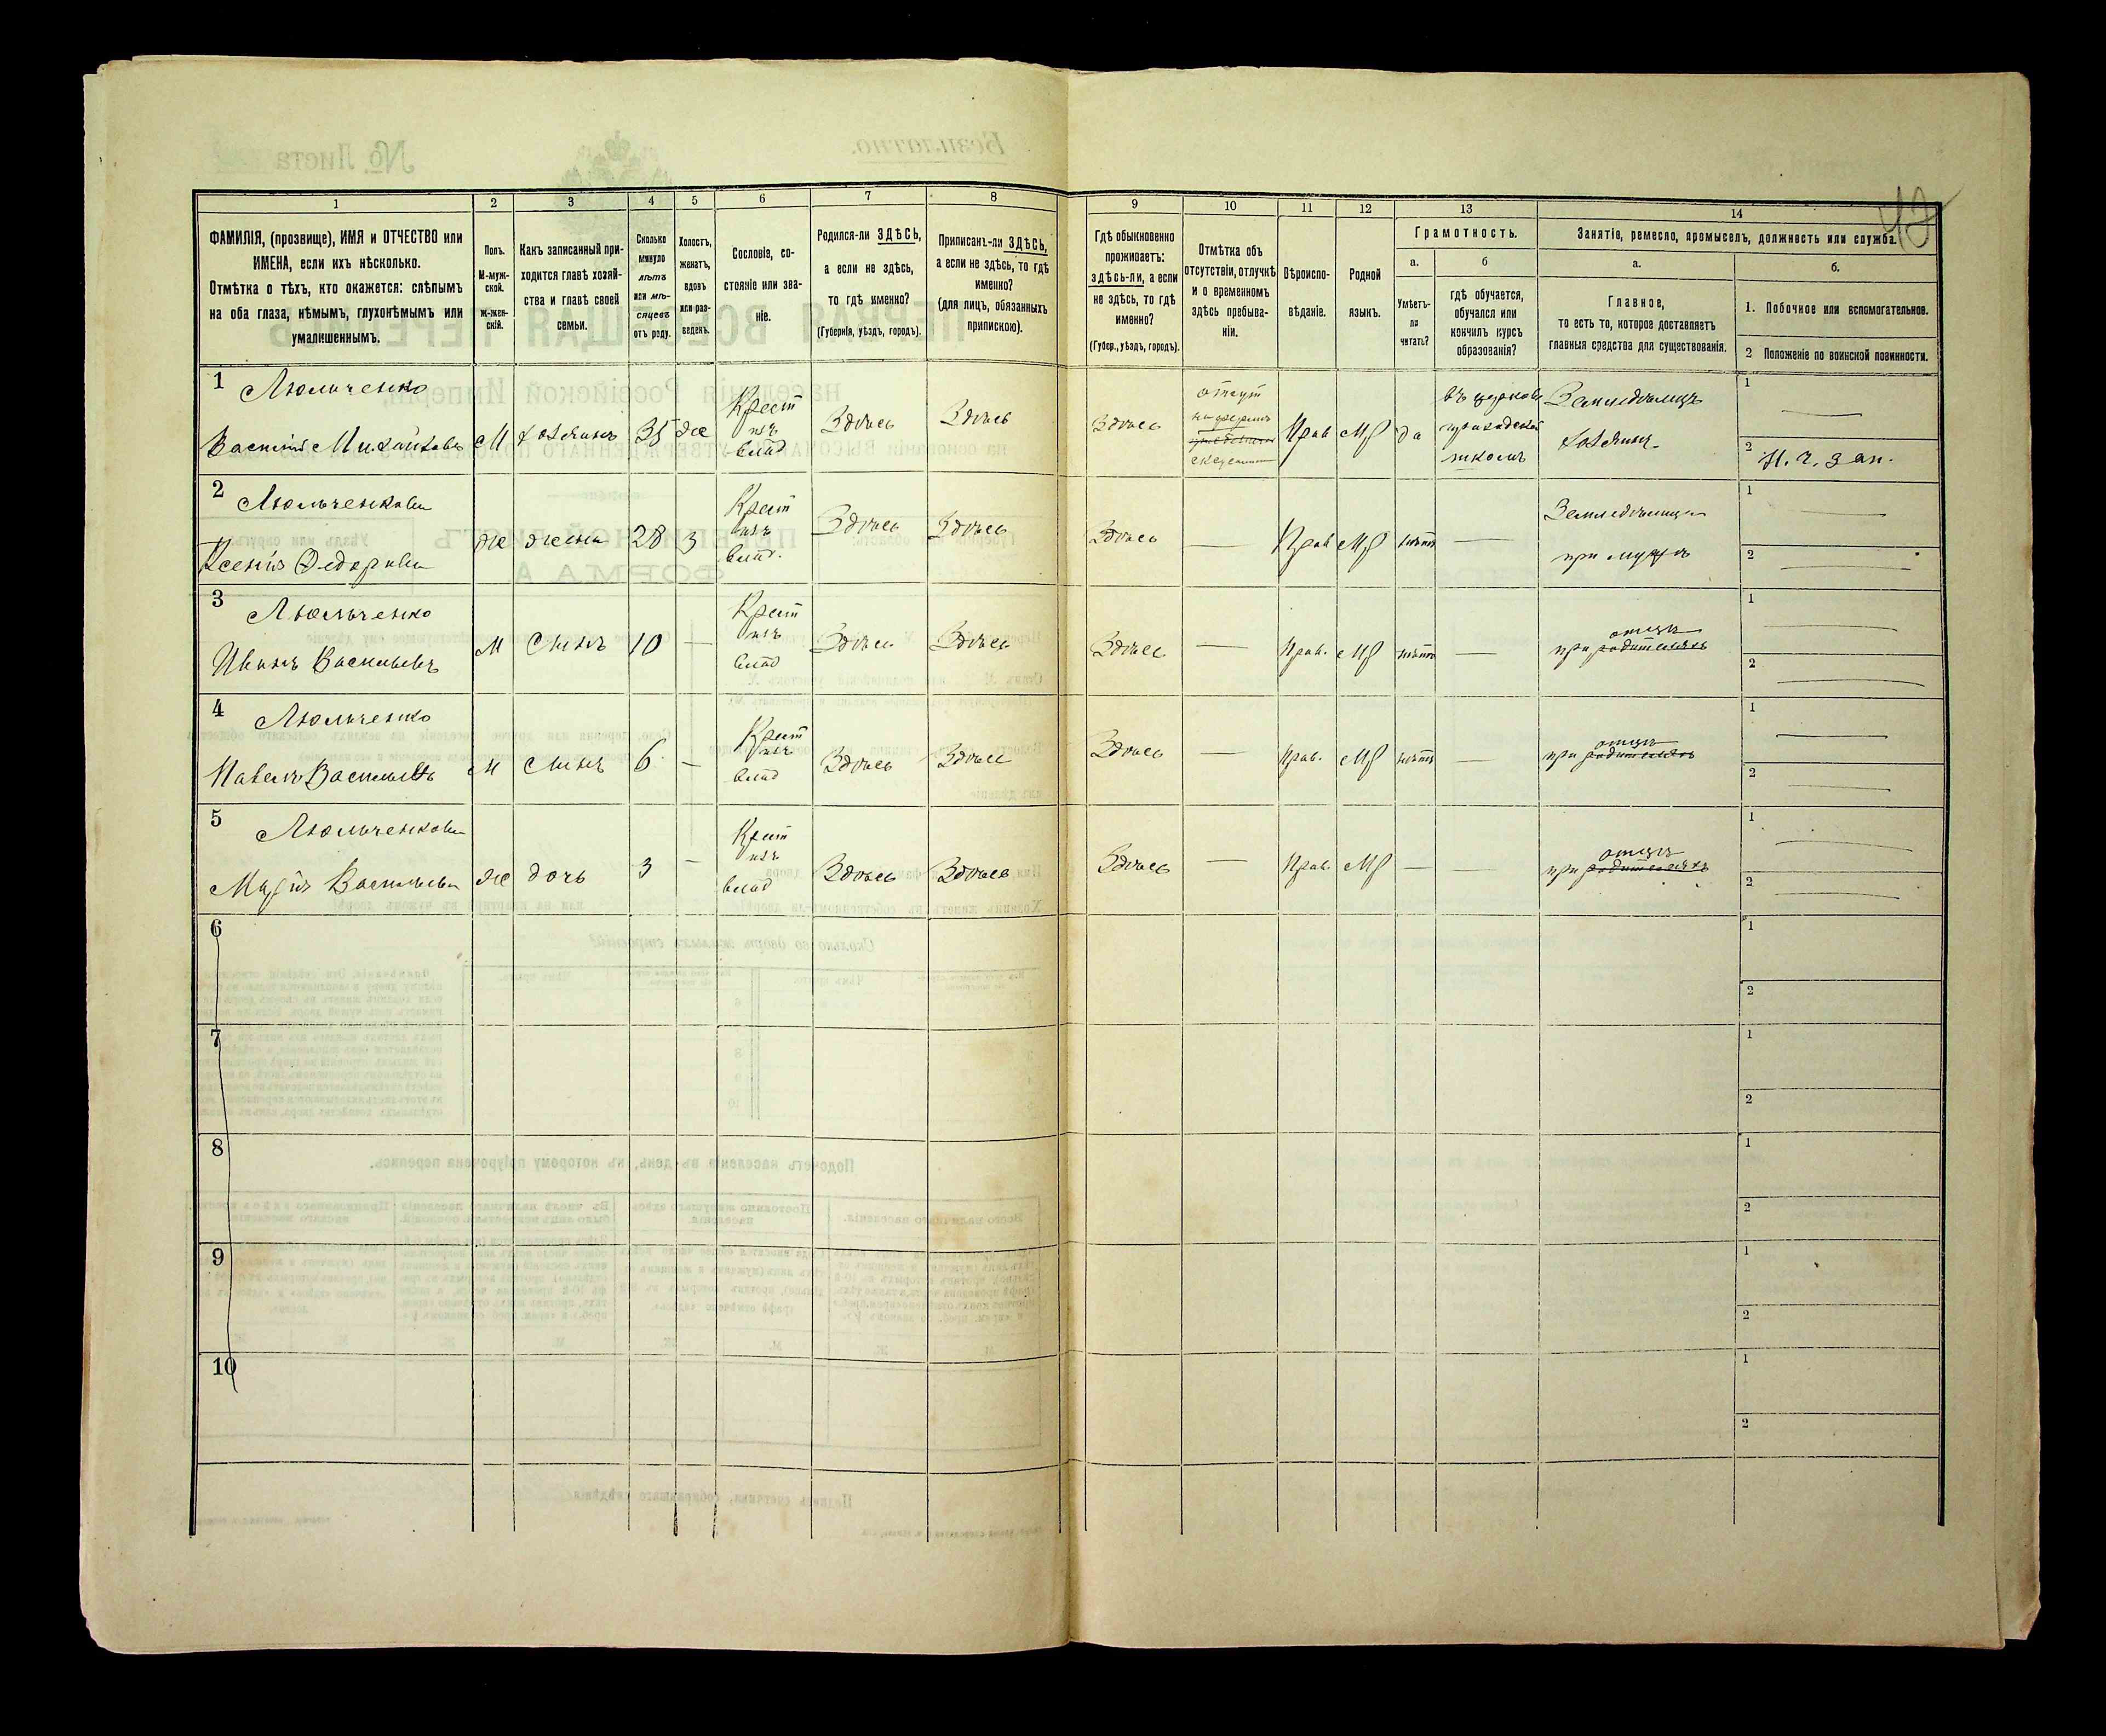 42
1
2
3
4
5
6
7
8
9
10
11
12
13
14
ФАМИЛІЯ, (прозвище), ИМЯ и ОТЧЕСТВО или
ИМЕНА, если ихъ нѣсколько.
Отмѣтка о тѣхъ, кто окажется: слѣпымъ
на оба глаза, нѣмымъ, глухонѣмымъ или
умалишеннымъ.
Полъ.
М-муж-
ской.
Ж-жен-
скій.
Какъ записанный при-
ходится главѣ хозяй-
ства и главѣ своей
семьи.
Сколько
минуло
лѣтъ
или мѣ-
сяцевъ
отъ роду.
Холостъ,
женатъ,
вдовъ
или раз-
веденъ.
Сословіе, со-
стояніе или зва-
ніе.
Родился-ли ЗДѢСЬ,
а если не здѣсь,
то гдѣ именно?
(Губернія, уѣздъ, городъ).
Приписанъ-ли ЗДѢСЬ,
а если не здѣсь, то гдѣ
именно?
(для лицъ, обязанныхъ
припискою).
Гдѣ обыкновенно
проживаетъ:
здѣсь-ли, а если
не здѣсь, то гдѣ
именно?
(Губер., уѣздъ, городъ).
Отмѣтка объ
отсутствіи, отлучкѣ
и о временномъ
здѣсь пребыва-
ніи.
Вѣроиспо-
вѣданіе.
Родной
языкъ.
Грамотность.
а.
Умѣетъ-
ли
читать?
б
гдѣ обучается,
обучался или
кончилъ курсъ
образованія?
Занятіе, ремесло, промыселъ, должность или служба.
а.
Главное,
то есть то, которое доставляетъ
главныя средства для существованія.
б.
1. Побочное или вспомогательное.
2 Положеніе по воинской повинности.
1 Люльченко
Василій Михайловъ М хозяинъ 35 же Крест изъ влад Здѣсь Здѣсь Здѣсь отсут Прав Мр да въ церков приходской школѣ Земледѣлецъ хозяинъ
1 —
2 Н. ч. зап.
2 Люльченкова
Ксенія Федорова же жена 28 З Крест изъ влад. Здѣсь Здѣсь Здѣсь — Прав Мр нѣтъ — Земледѣлица при мужѣ
1 —
2 —
3 Люльченко
Иванъ Васильевъ М Сынъ 10 — Крест изъ влад Здѣсь Здѣсь Здѣсь — Прав. Мр нѣтъ — при родителяхъ отцѣ
1 —
2 —
4 Люльченко
Павелъ Васильевъ М Сынъ 6 — Крест изъ влад Здѣсь Здѣсь Здѣсь — Прав. Мр нѣтъ — при родителяхъ отцѣ
1 —
2 —
5 Люльченкова
Марія Васильева же дочь 3 — Крест изъ влад Здѣсь Здѣсь Здѣсь — Прав. Мр — — при родителяхъ отцѣ
1 —
2 —
6
1
2
7
1
2
8
1
2
9
1
2
10
1
2